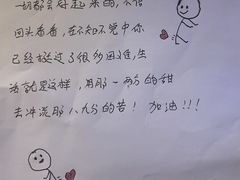 一切都会好起来的，不信
回头看看，在不知不觉中你
已经挺过了很多困难，生
活就是这样，用那一两分的甜
去冲淡那八九分的苦！加油!!!